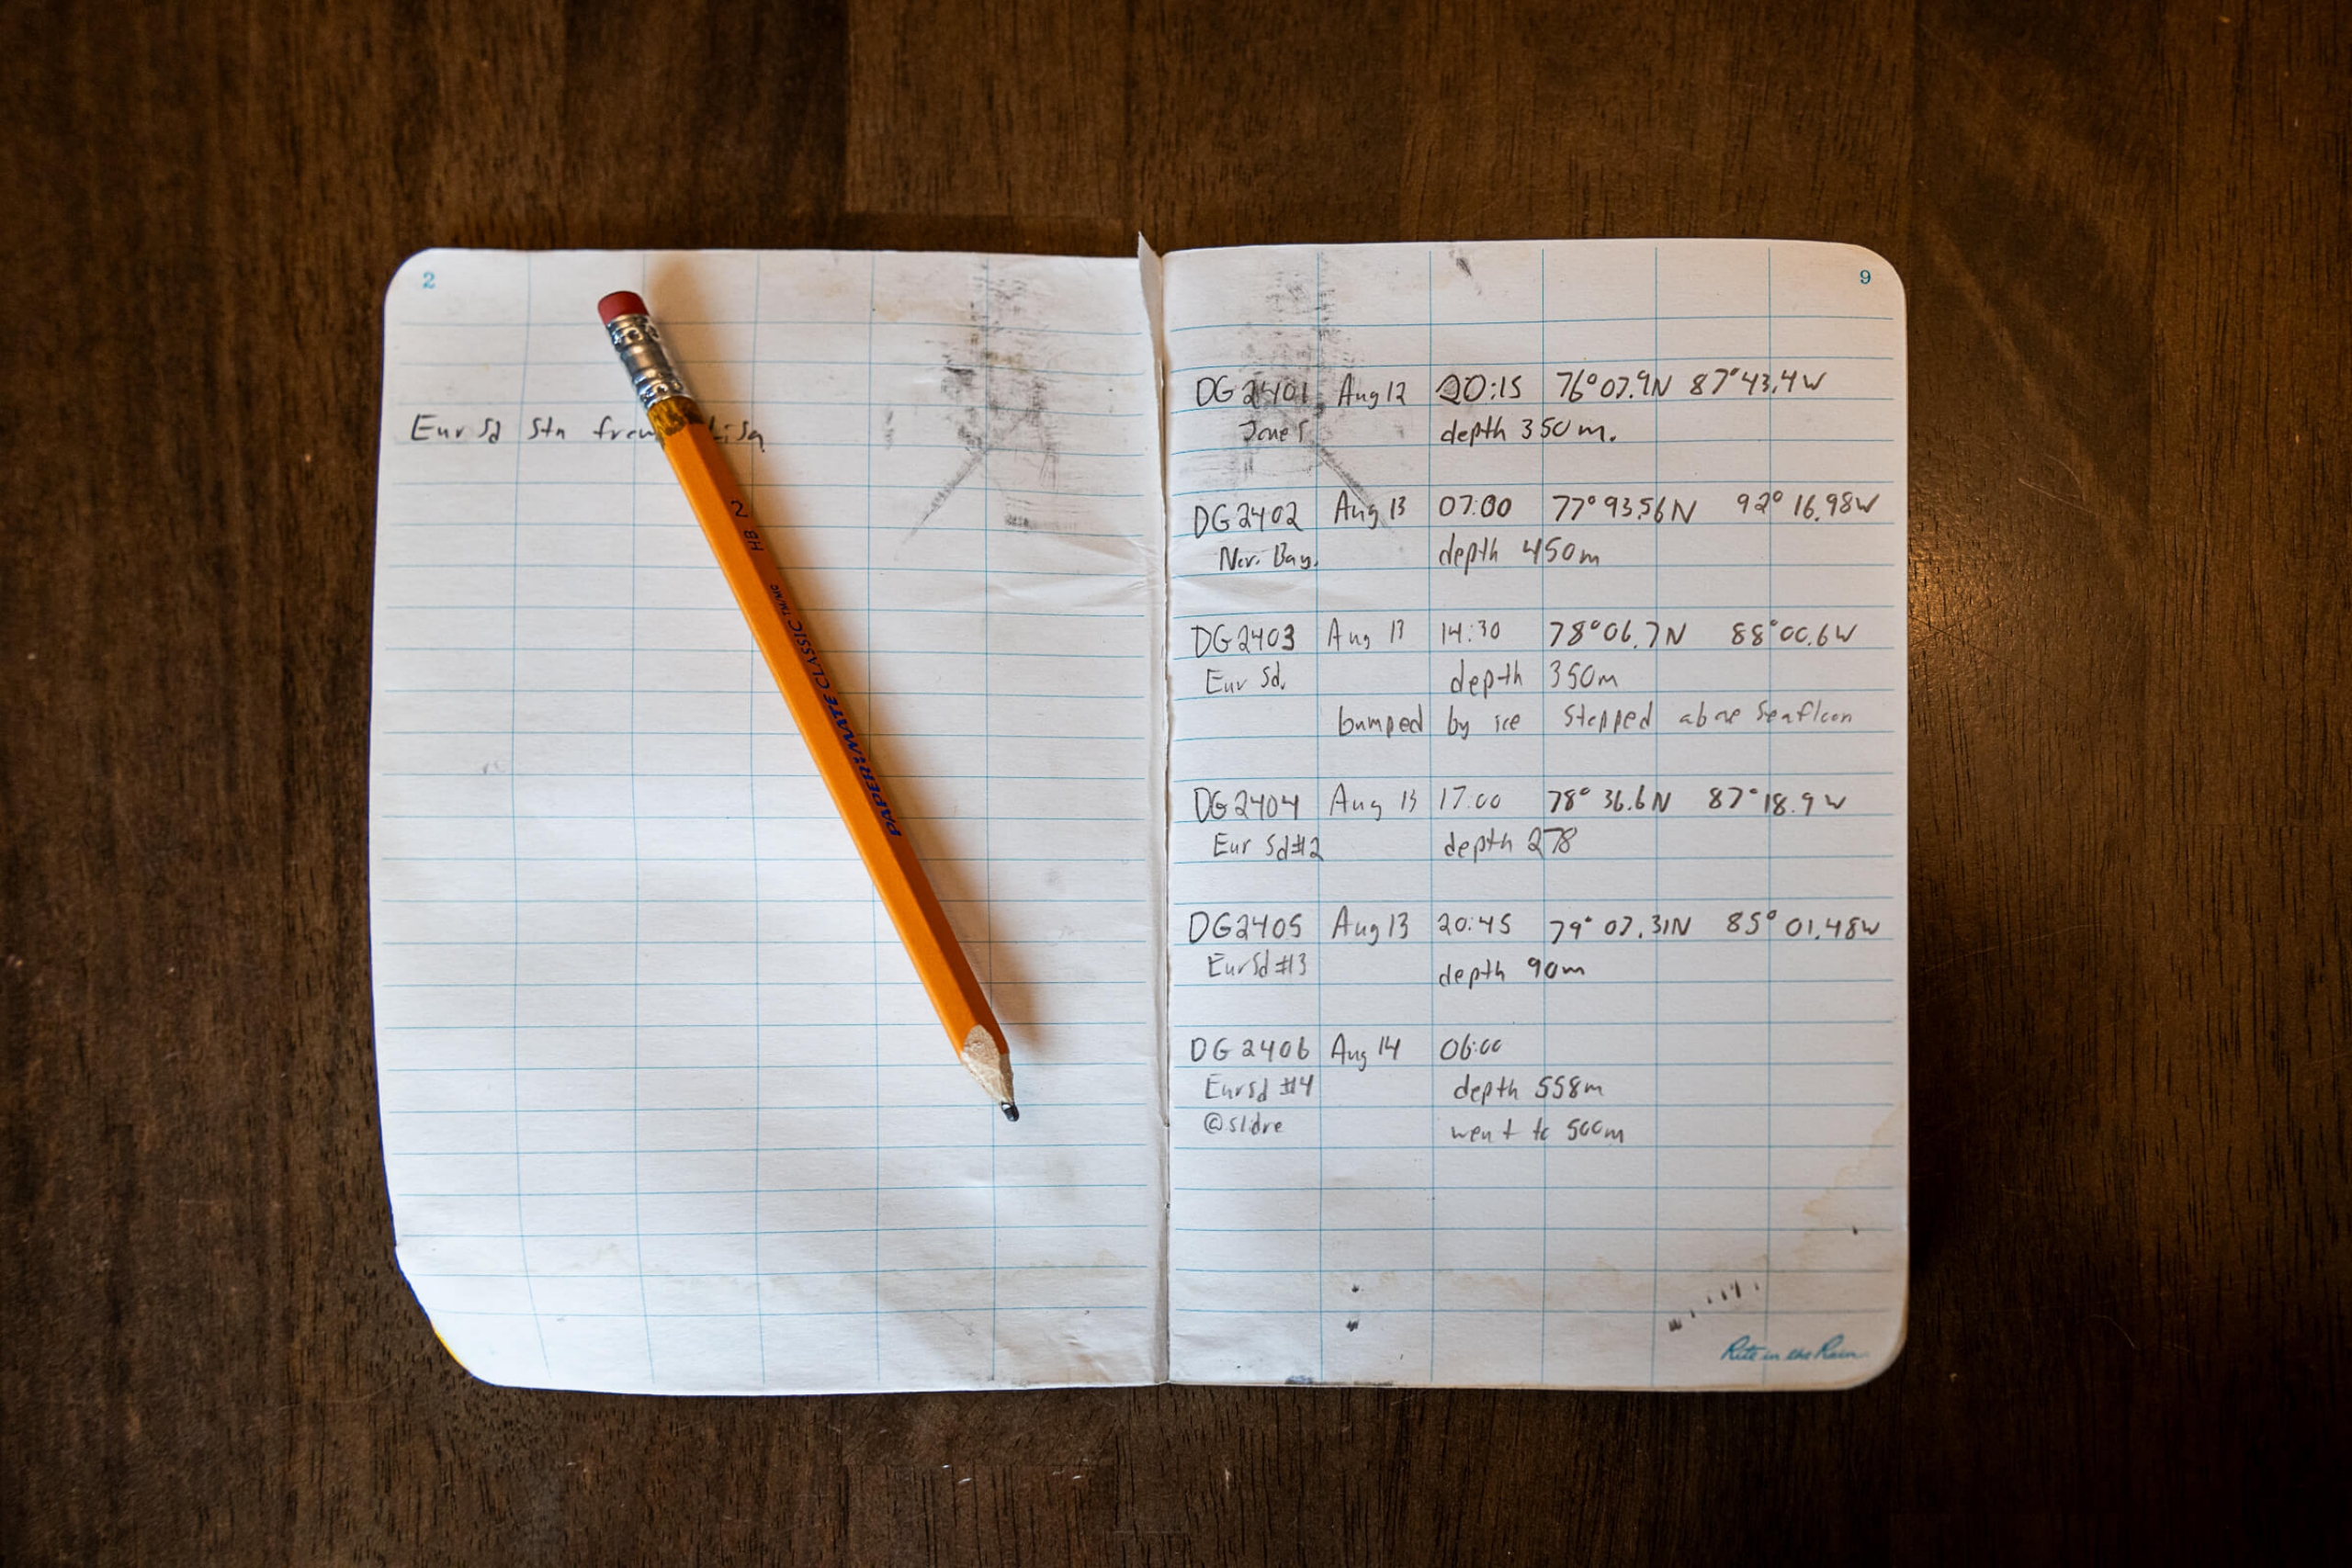 2
Eur Sd Stn from Lisa
HB 2
PAPER:MATE CLASSIC
9
DG2401 Aug 12 20:15 76°07.9N 87°43.4W
Jones depth 350m.
DG2402 Aug 13 07:00 77°93.56N 92°16.98W
Nor. Bay. depth 450m
DG2403 Aug 13 14:30 78°06.7N 88°00.6W
Eur Sd. depth 350m
bumped by ice Stopped above Seafloor
DG2404 Aug 13 17:00 78°36.6N 87°18.9W
Eur Sd#2 depth 278
DG2405 Aug 13 20:45 79°07.31N 85°01.48W
Eur Sd #3 depth 90m
DG2406 Aug 14 06:00
Eur Sd #4 depth 558m
@Sldre went to 500m
Rite in the Rain